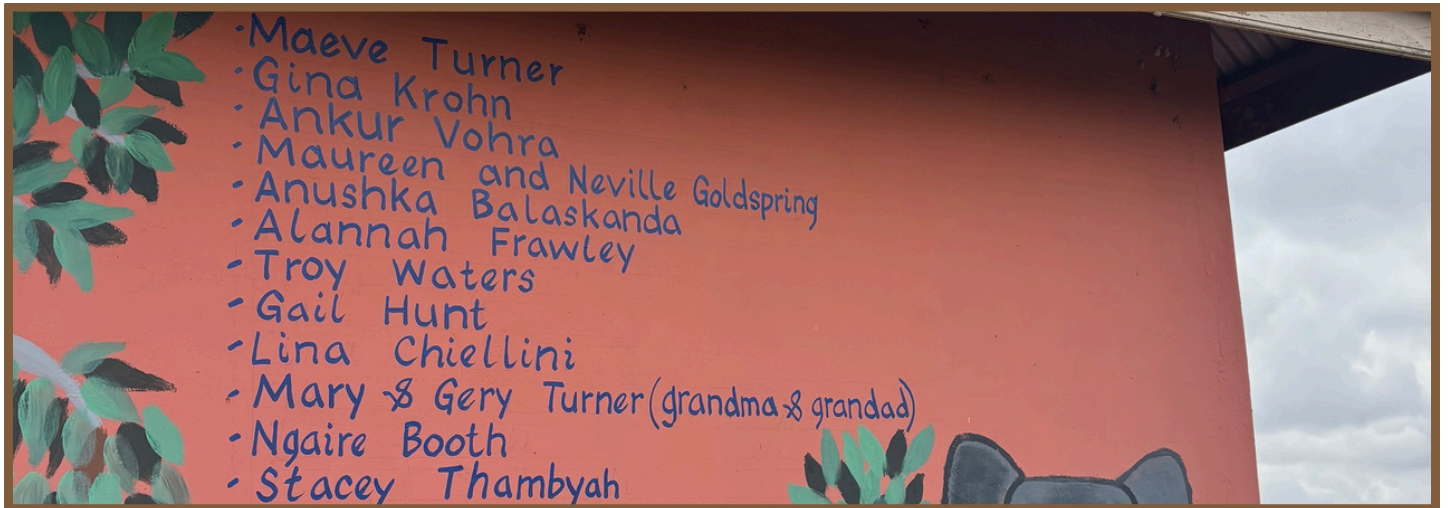 - Maeve Turner
- Gina Krohn
- Ankur Vohra
- Maureen and Neville Goldspring
- Anushka Balaskanda
- Alannah Frawley
- Troy Waters
- Gail Hunt
- Lina Chiellini
- Mary & Gery Turner (grandma & grandad)
- Ngaire Booth
- Stacey Thambyah